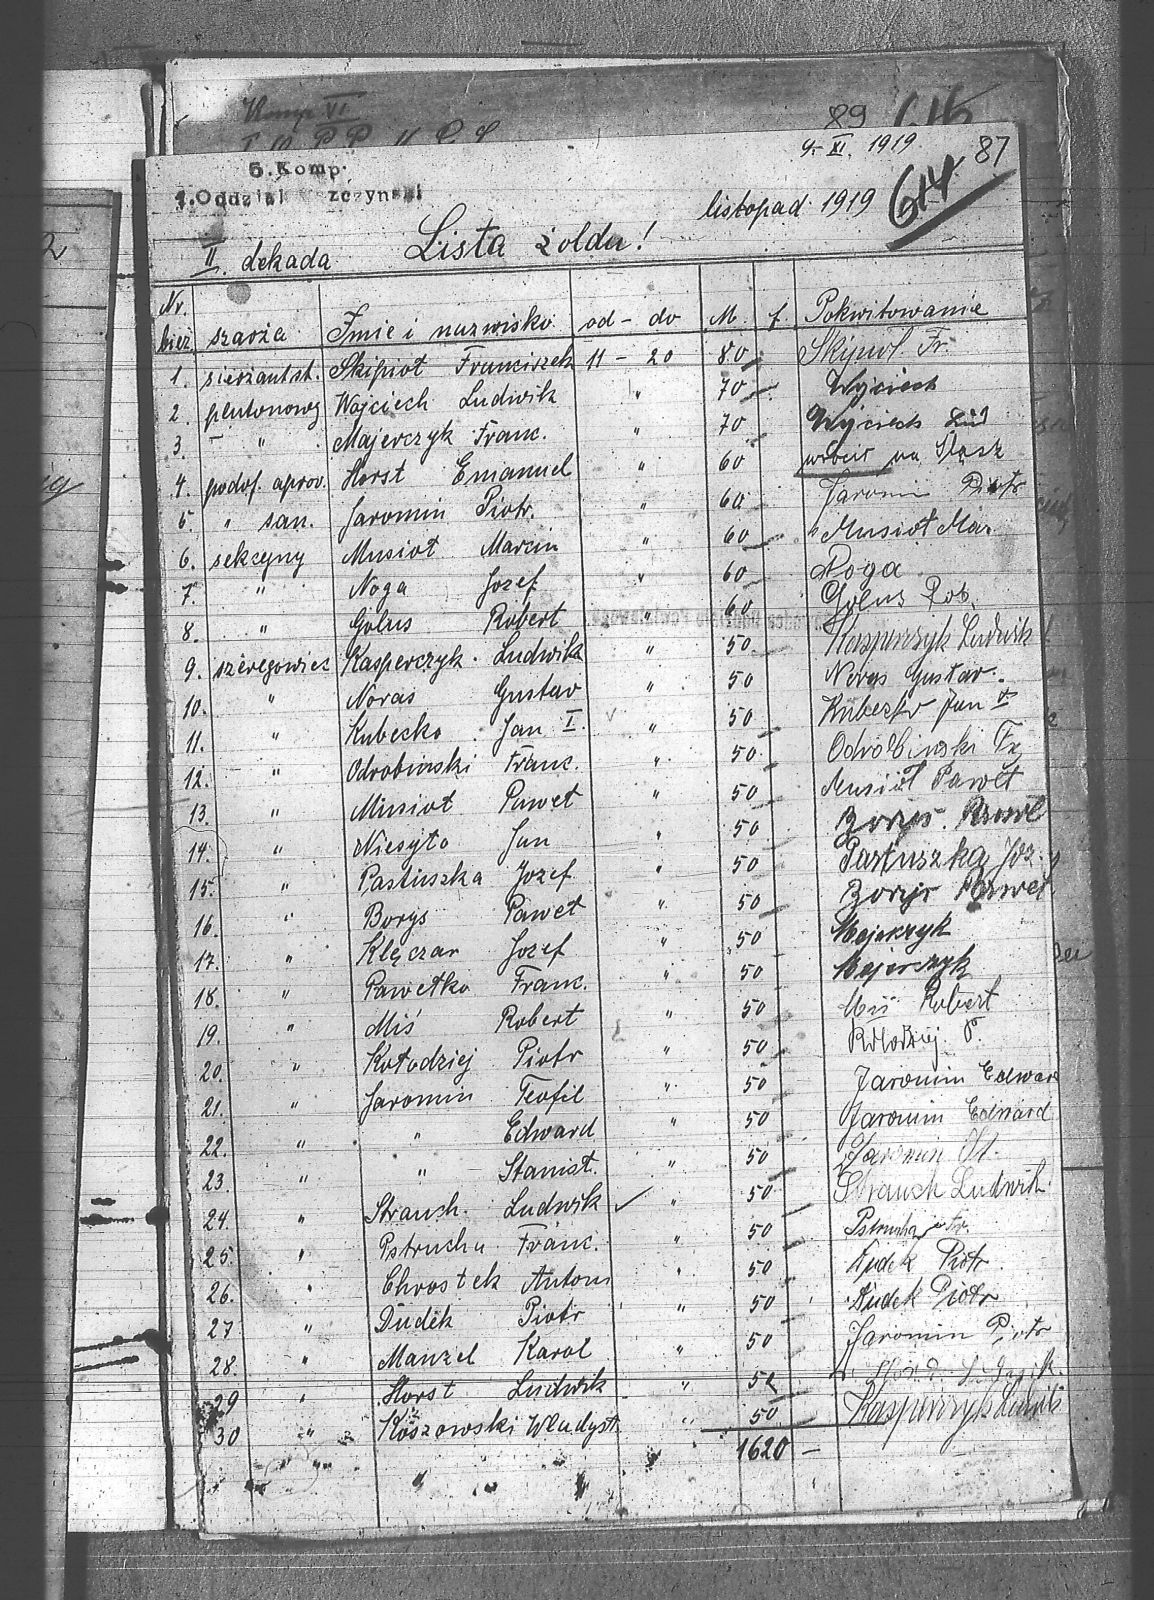 Komp VI
89
616
9. XI. 1919
87
5. Komp.
1. Oddział szczyński
listopad 1919
614
II. dekada
Lista żołdu!
Nr. bież. szarża Imie i nazwisko od - do M. f. Pokwitowanie
1. sierżant st. Skipioł Franciszek 11 - 20 80 Skipioł Fr.
2. plutonowy Wojciech Ludwik " 70 Wojciech
3. " Majerczyk Franc. " 70 Wojciech Lud
4. podof. aprow. Horst Emanuel " 60 na Śląsk
5. " san. Jaromin Piotr. " 60 Jaromin Piotr
6. sekcyjny Musioł Marcin " 60 Musioł Mar.
7. " Noga Jozef " 60 Noga
8. " Golus Robert " 60 Golus Rob.
9. szeregowiec Kasperczyk Ludwik " 50 Kasperczyk Ludwik
10. " Noras Gustav " 50 Noras Gustav.
11. " Kubeczko Jan I. " 50 Jan
12. " Odrobinski Franc. " 50 Odrobinski Fr
13. " Musioł Paweł " 50 Musioł Paweł
14. " Niesyto Jan " 50 Borys Paweł
15. " Pastuszka Jozef " 50 Pastuszka Joz.
16. " Borys Paweł " 50 Borys Paweł
17. " Klęczar Jozef " 50 Majerczyk
18. " Pawełko Franc. " 50 Majerczyk
19. " Miś Robert " 50 Miś Robert
20. " Kołodziej Piotr " 50 Kołodziej P.
21. " Jaromin Teofil " 50 Jaromin Edward
22. " " Edward " 50 Jaromin Edward
23. " " Stanisł. " 50 Jaromin St.
24. " Strauch. Ludwik " 50 Strauch Ludwik
25. " Pstrucha Franc. " 50 Pstrucha Fr.
26. " Chrostek Antoni " 50 Dudek Piotr
27 " Dudek Piotr " 50 Dudek Piotr
28. " Manzel Karol " 50 Jaromin Piotr
29 " Horst Ludwik " 50
30 " Władysł. " 50 Kasperczyk Ludwik
1620 -